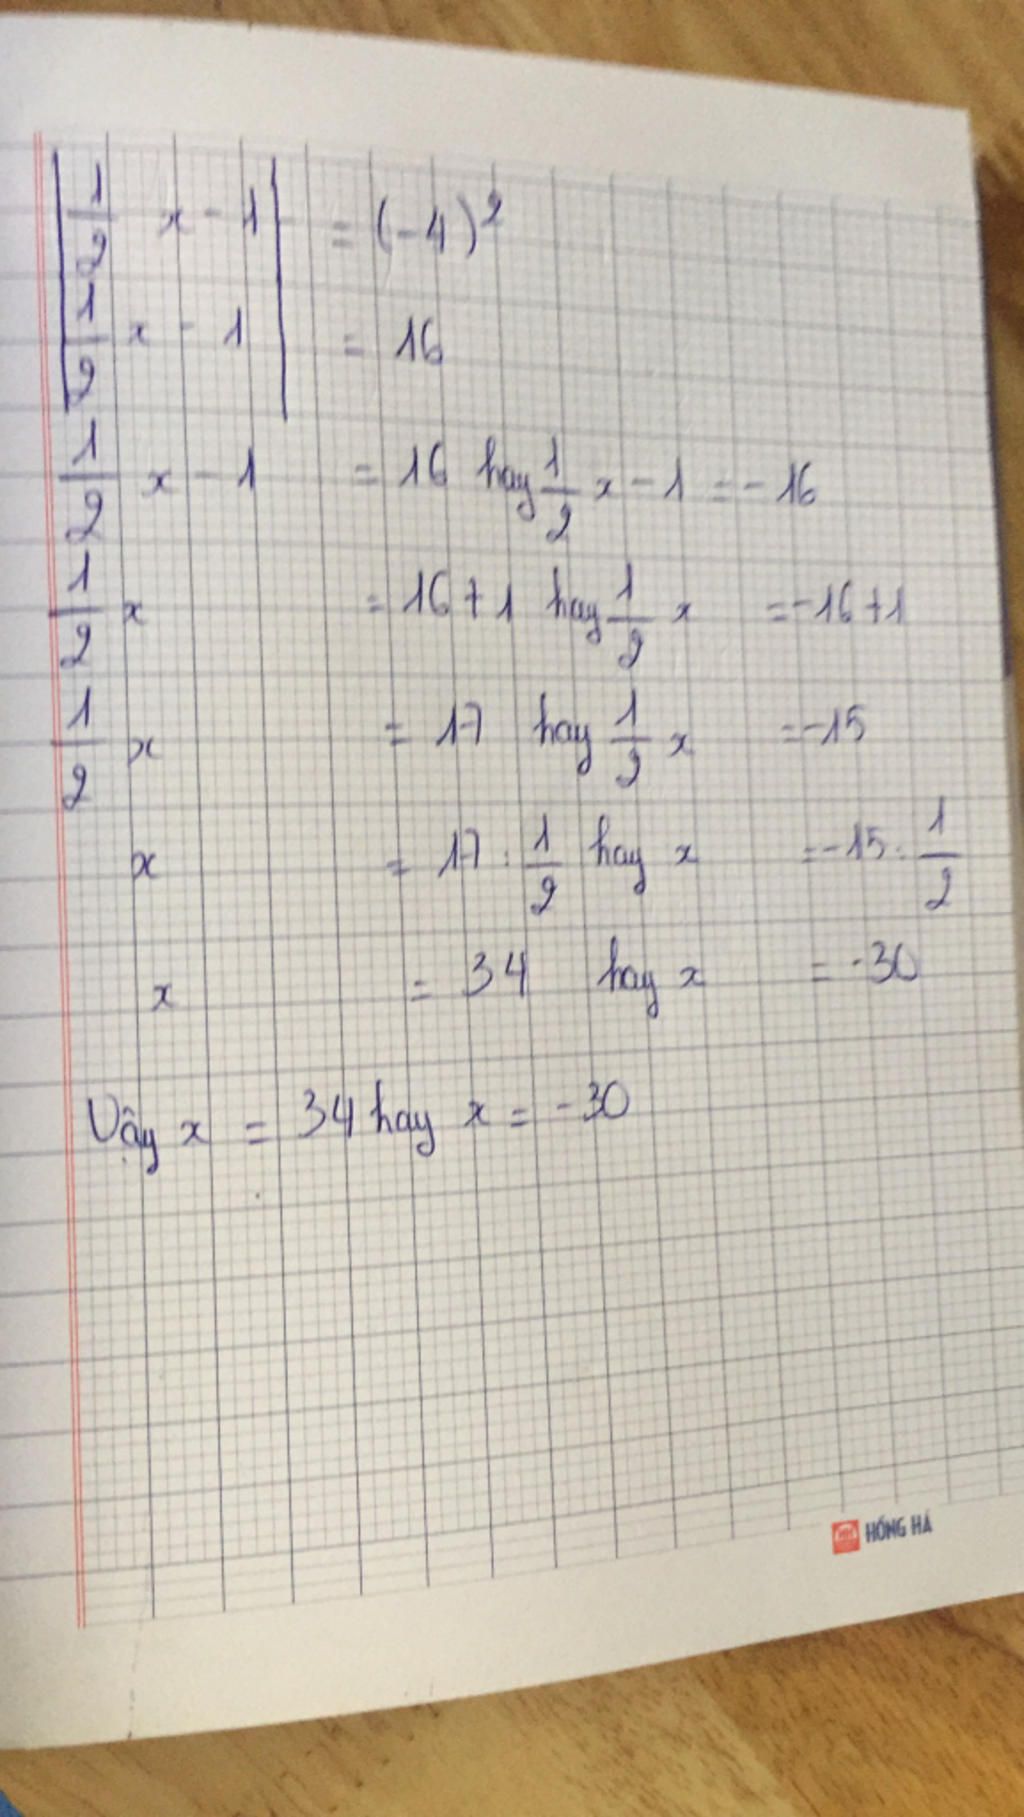 |1/2 x - 1| = (-4)²
|1/2 x - 1| = 16
1/2 x - 1 = 16 hay 1/2 x - 1 = -16
1/2 x = 16 + 1 hay 1/2 x = -16 + 1
1/2 x = 17 hay 1/2 x = -15
x = 17 : 1/2 hay x = -15 : 1/2
x = 34 hay x = -30
Vậy x = 34 hay x = -30
HỒNG HÀ